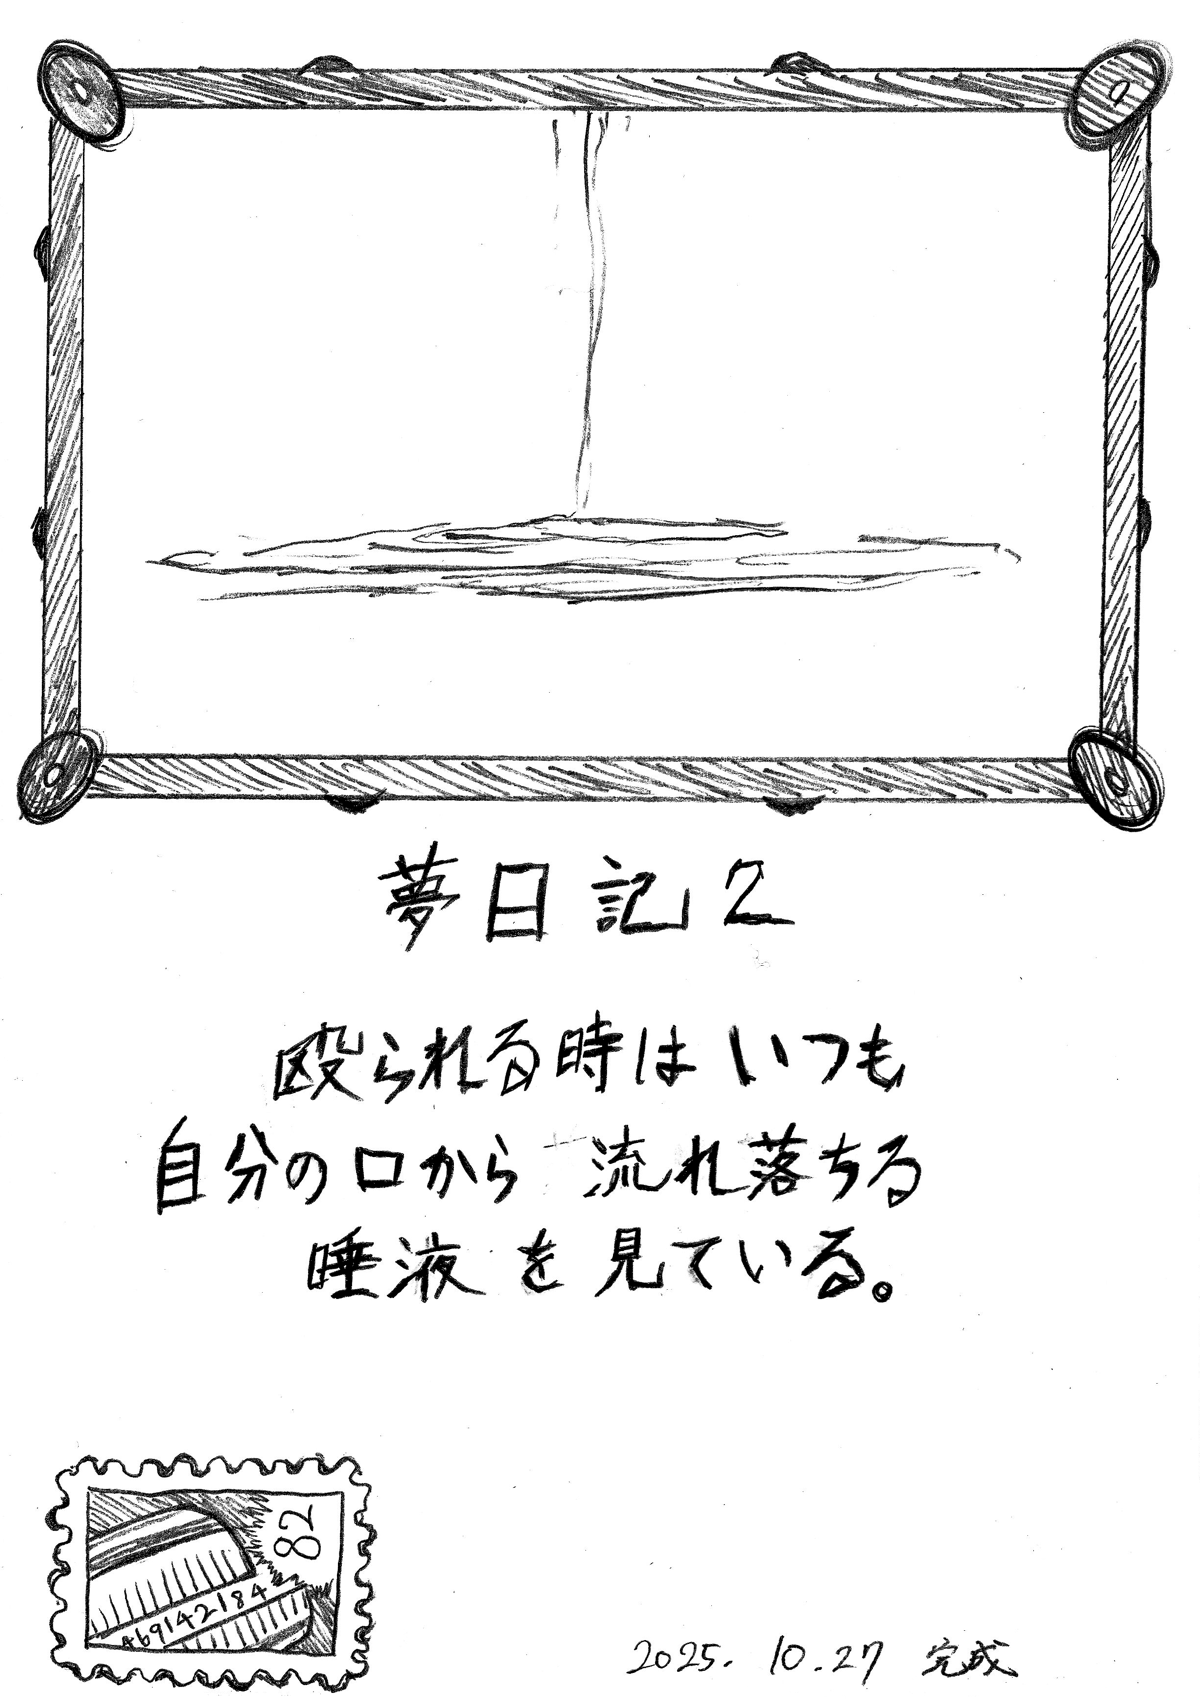 夢日記2
殴られる時はいつも
自分の口から流れ落ちる
唾液を見ている。
82
469142184
2025. 10.27 完成